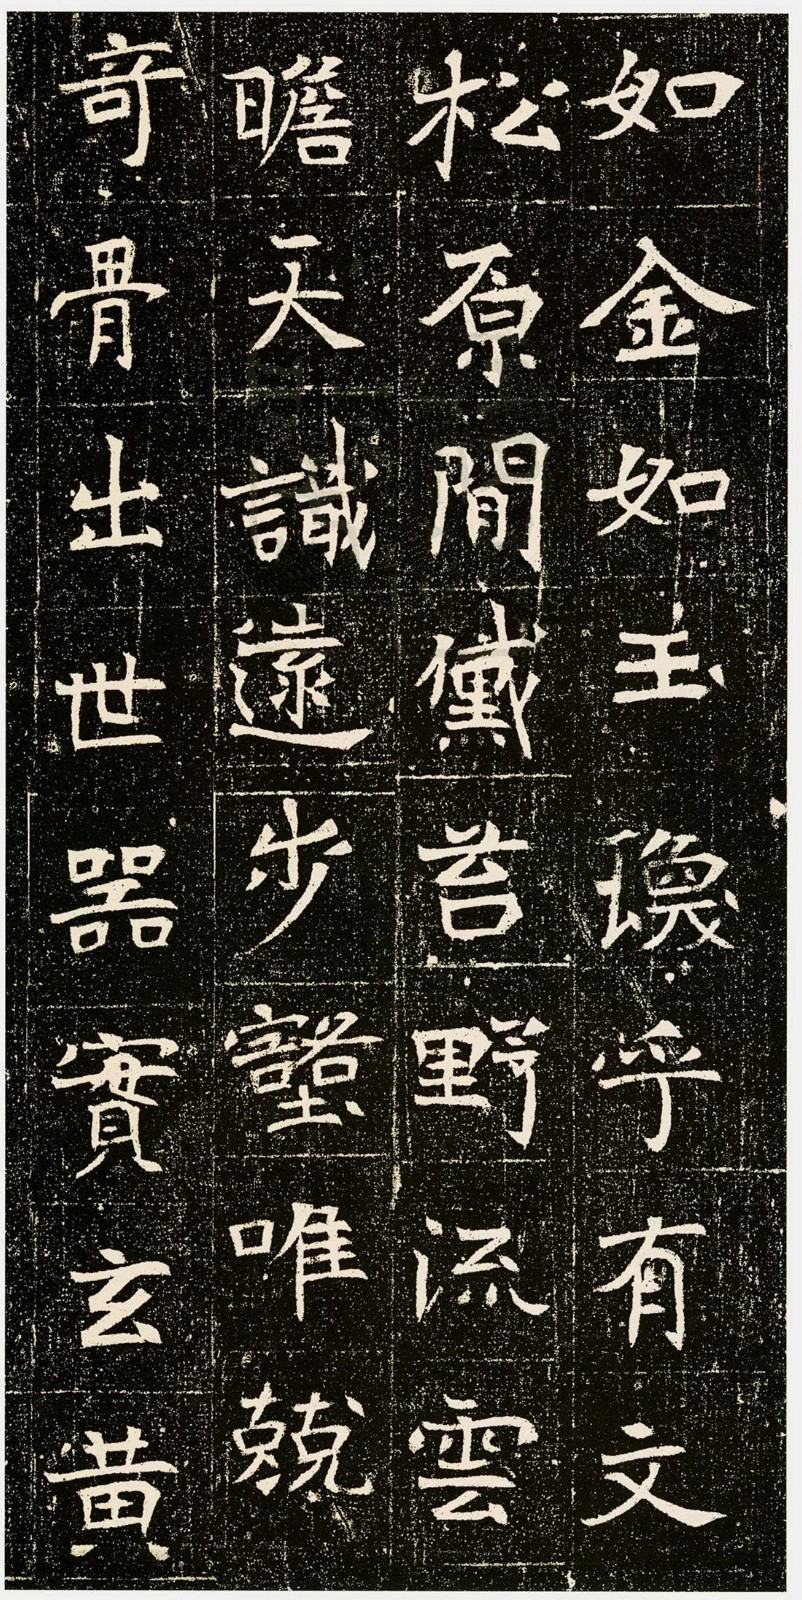 如金如玉瑍乎有文
松原閒黛苔野流雲
瞻天識遠步壑唯兢
竒骨出世器實玄黃